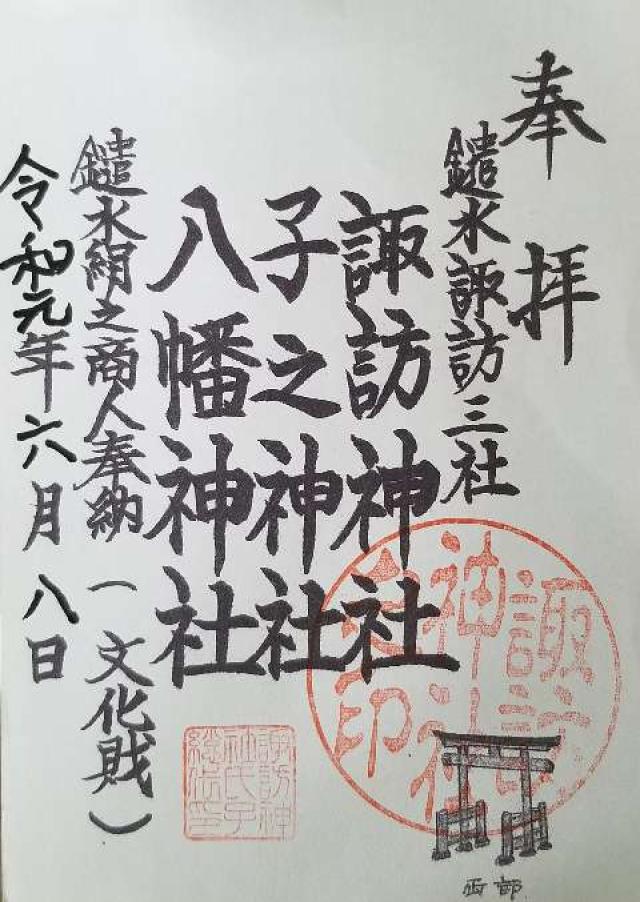 奉拝
鑓水諏訪三社
諏訪神社
子之神社
八幡神社
鑓水絹之商人奉納(文化財)
令和元年六月八日
諏訪
神社
之印
諏訪神
社氏子
総代印
西部